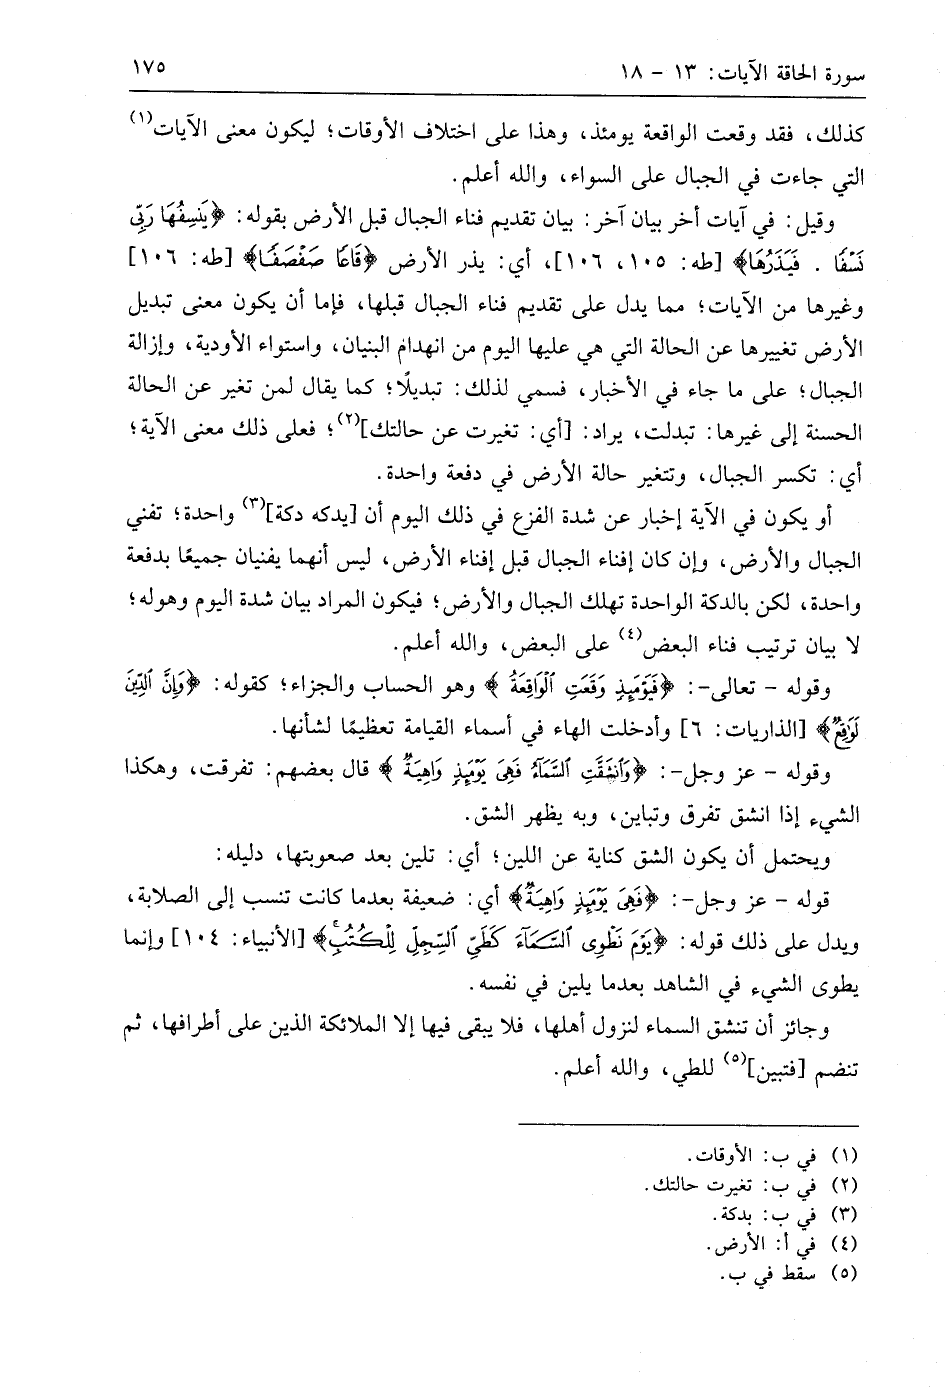 سورة الحاقة الآيات: ١٣ - ١٨
١٧٥
كذلك، فقد وقعت الواقعة يومئذ، وهذا على اختلاف الأوقات؛ ليكون معنى الآيات(١)
التي جاءت في الجبال على السواء، والله أعلم.
وقيل: في آيات أخر بيان آخر: بيان تقديم فناء الجبال قبل الأرض بقوله: ﴿يَنسِفُهَا رَبِّى
نَسْفًا . فَيَذَرُهَا﴾ [طه: ١٠٥، ١٠٦]، أي: يذر الأرض ﴿قَاعًا صَفْصَفًا﴾ [طه: ١٠٦]
وغيرها من الآيات؛ مما يدل على تقديم فناء الجبال قبلها، فإما أن يكون معنى تبديل
الأرض تغييرها عن الحالة التي هي عليها اليوم من انهدام البنيان، واستواء الأودية، وإزالة
الجبال؛ على ما جاء في الأخبار، فسمي لذلك: تبديلًا؛ كما يقال لمن تغير عن الحالة
الحسنة إلى غيرها: تبدلت، يراد: [أي: تغيرت عن حالتك](٢)؛ فعلى ذلك معنى الآية؛
أي: تكسر الجبال، وتتغير حالة الأرض في دفعة واحدة.
أو يكون في الآية إخبار عن شدة الفزع في ذلك اليوم أن [يدكه دكة](٣) واحدة؛ تفني
الجبال والأرض، وإن كان إفناء الجبال قبل إفناء الأرض، ليس أنهما يفنيان جميعًا بدفعة
واحدة، لكن بالدكة الواحدة تهلك الجبال والأرض؛ فيكون المراد بيان شدة اليوم وهوله؛
لا بيان ترتيب فناء البعض(٤) على البعض، والله أعلم.
وقوله - تعالى-: ﴿فَيَوْمَئِذٍ وَقَعَتِ ٱلْوَاقِعَةُ﴾ وهو الحساب والجزاء؛ كقوله: ﴿وَإِنَّ ٱلدِّينَ
لَوَٰقِعٌ﴾ [الذاريات: ٦] وأدخلت الهاء في أسماء القيامة تعظيمًا لشأنها.
وقوله - عز وجل-: ﴿وَٱنشَقَّتِ ٱلسَّمَآءُ فَهِىَ يَوْمَئِذٍ وَاهِيَةٌ﴾ قال بعضهم: تفرقت، وهكذا
الشيء إذا انشق تفرق وتباين، وبه يظهر الشق.
ويحتمل أن يكون الشق كناية عن اللين؛ أي: تلين بعد صعوبتها، دليله:
قوله - عز وجل-: ﴿فَهِىَ يَوْمَئِذٍ وَاهِيَةٌ﴾ أي: ضعيفة بعدما كانت تنسب إلى الصلابة،
ويدل على ذلك قوله: ﴿يَوْمَ نَطْوِى ٱلسَّمَآءَ كَطَىِّ ٱلسِّجِلِّ لِلْكُتُبِ﴾ [الأنبياء: ١٠٤] وإنما
يطوى الشيء في الشاهد بعدما يلين في نفسه.
وجائز أن تنشق السماء لنزول أهلها، فلا يبقى فيها إلا الملائكة الذين على أطرافها، ثم
تنضم [فتبين](٥) للطي، والله أعلم.
(١) في ب: الأوقات.
(٢) في ب: تغيرت حالتك.
(٣) في ب: بدكة.
(٤) في أ: الأرض.
(٥) سقط في ب.